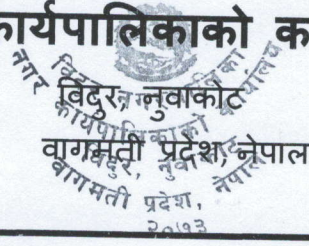 कार्यपालिकाको क
विदुर, नुवाकोट
वागमती प्रदेश, नेपाल
विदुर नगरपालिका
नगर कार्यपालिकाको कार्यालय
विदुर, नुवाकोट
वागमती प्रदेश, नेपाल
२०७३